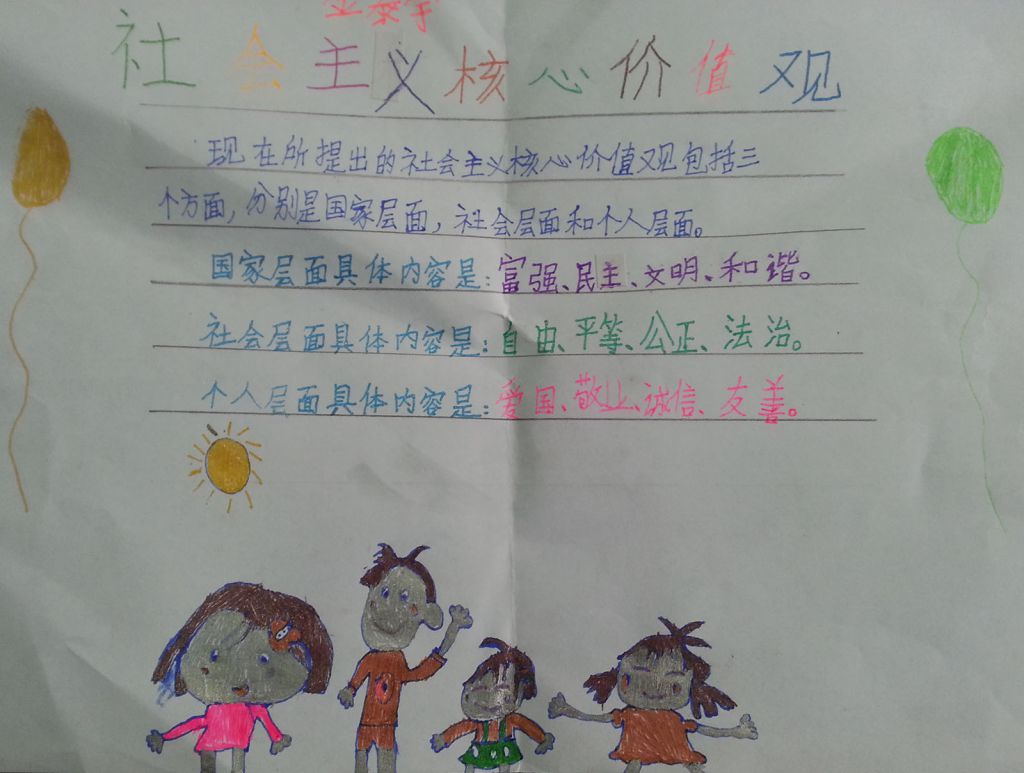 社会主义核心价值观
现在所提出的社会主义核心价值观包括三
个方面,分别是国家层面,社会层面和个人层面。
国家层面具体内容是:富强、民主、文明、和谐。
社会层面具体内容是:自由、平等、公正、法治。
个人层面具体内容是:爱国、敬业、诚信、友善。